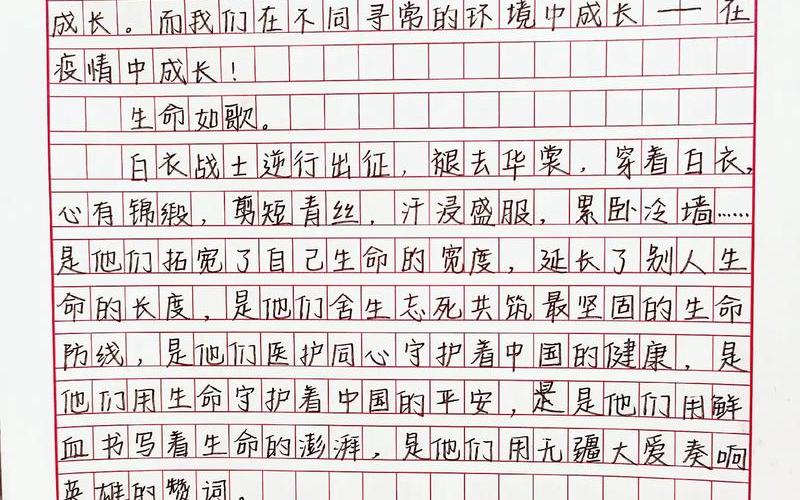 成长。而我们在不同寻常的环境中成长——在
疫情中成长！
生命如歌。
白衣战士逆行出征，褪去华裳，穿着白衣，
心有锦缎，剪短青丝，汗浸盛服，累卧冷墙……
是他们拓宽了自己生命的宽度，延长了别人生
命的长度，是他们舍生忘死共筑最坚固的生命
防线，是他们医护同心守护着中国的健康，是
他们用生命守护着中国的平安，是是他们用鲜
血书写着生命的澎湃，是他们用无疆大爱奏响
英雄的赞词。